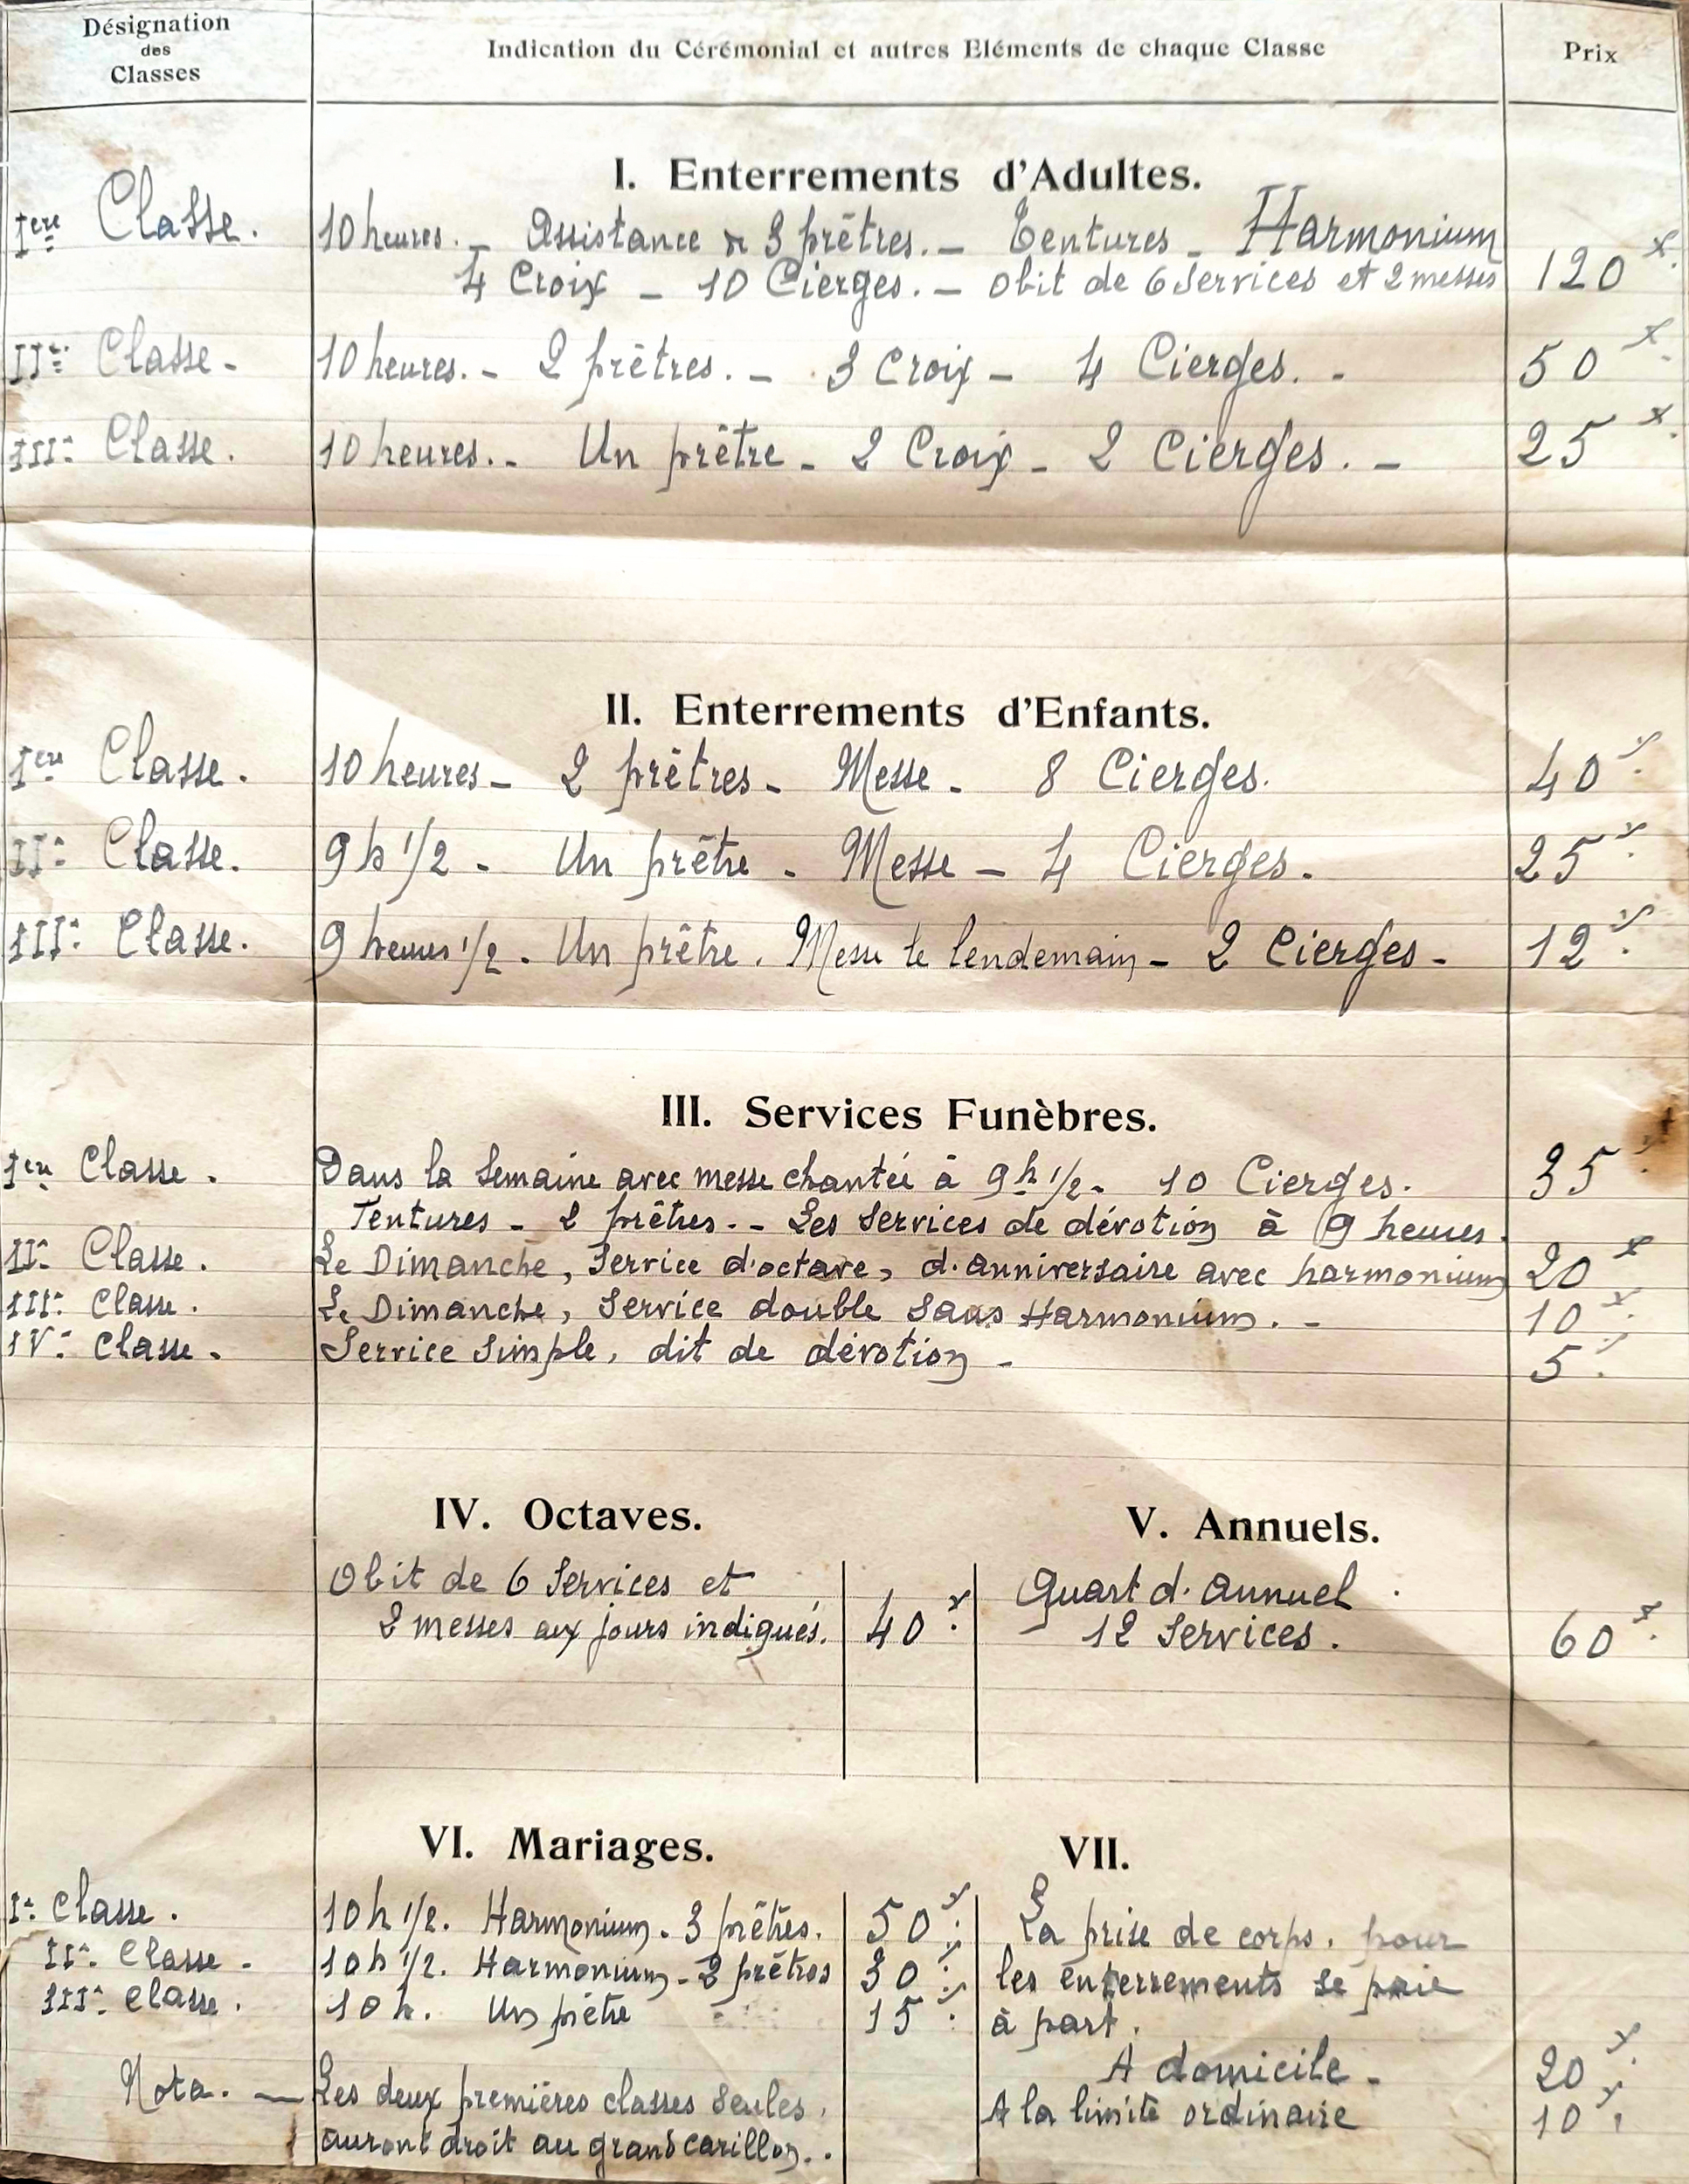 Désignation
des
Classes
Indication du Cérémonial et autres Eléments de chaque Classe
Prix
I. Enterrements d'Adultes.
Ière Classe. 10 heures. - Assistance de 3 prêtres. - Tentures - Harmonium
4 Croix - 10 Cierges. - Obit de 6 Services et 2 messes 120
IIe Classe - 10 heures. - 2 prêtres. - 3 Croix - 4 Cierges. - 50
IIIe Classe. 10 heures. - Un prêtre - 2 Croix - 2 Cierges. - 25
II. Enterrements d'Enfants.
Ière Classe. 10 heures - 2 prêtres - Messe - 8 Cierges. 40
IIe Classe. 9 h 1/2 - Un prêtre - Messe - 4 Cierges. 25
IIIe Classe. 9 heures 1/2. Un prêtre. Messe le lendemain - 2 Cierges - 12
III. Services Funèbres.
Ière Classe. Dans la Semaine avec messe chantée à 9 h 1/2 - 10 Cierges. 35
Tentures - 2 prêtres. - Les Services de dévotion à 9 heures.
IIe Classe. Le Dimanche, Service d'octave, d'anniversaire avec harmonium 20
IIIe Classe. Le Dimanche, Service double sans Harmonium. - 10
IVe Classe. Service Simple, dit de dévotion - 5
IV. Octaves.
Obit de 6 Services et
2 messes aux jours indiqués. 40
V. Annuels.
Quart d'annuel
12 Services. 60
VI. Mariages.
Ie Classe. 10 h 1/2. Harmonium - 3 prêtres. 50
IIe Classe - 10 h 1/2. Harmonium - 2 prêtres 30
IIIe Classe. 10 h. Un prêtre 15
Nota. - Les deux premières classes seules,
auront droit au grand carillon. .
VII.
La prise de corps, pour
les enterrements se paie
à part.
A domicile - 20
A la limite ordinaire 10